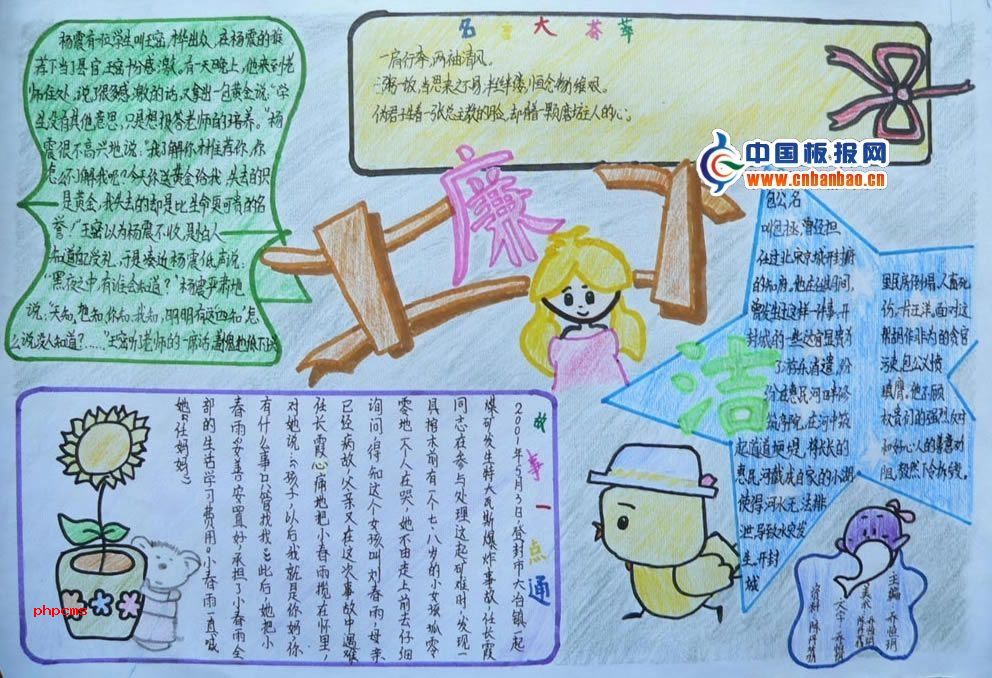 名言大荟萃
一肩行李,两袖清风。
一粥一饭,当思来之不易,半丝半缕,恒念物力维艰。
伪君子生着一张总主教的脸,却揣一颗磨坊主人的心。
中国板报网
www.cnbanbao.cn
杨震有一位学生叫王密,才华出众,在杨震的推
荐下当了县官,王密十分感激。有一天晚上,他来到老
师住处,说了很多感激的话,又拿出一包黄金说:“学
生没有其他意思,只是想报答老师的培养。”杨
震很不高兴地说:“我了解你才推荐你,你
怎么不了解我呢?今天你送黄金给我,失去的只
是黄金,我失去的却是比生命更可贵的名
誉!”王密以为杨震不收,是怕人
知道而受礼,于是凑近杨震低声说:
“黑夜之中有谁会知道?”杨震严肃地
说:“天知,地知,你知,我知,明明有这四知,怎
么说没人知道?……”王密听老师的一席话,羞愧地低下头
廉
洁
包公名
叫包拯,曾经担
任过北宋京城开封府
的知府,他在任期间,
曾发生过这样一件事。开
封城的一些达官显贵为
了游乐消遣,纷
纷在惠民河两岸修
筑亭院,在河中筑
起道道埂堤,将长长的
惠民河截成自家的小湖,
使得河水无法排
泄,导致水灾发
生,开封
城
里民房倒塌,人畜死
伤,一片汪洋。面对这
帮胡作非为的贪官
污吏,包公义愤
填膺。他不顾
权贵们的强烈反对
和好心人的善意劝
阻,毅然下令拆毁。
故事一点通
2001年5月3日登封市大冶镇一起
煤矿发生特大瓦斯爆炸事故,任长霞
同志在参与处理这起矿难时,发现一
具棺木前有个七八岁的小女孩孤零
零地一个人在哭。她不由走上前去仔细
询问,得知这个女孩叫刘春雨,母亲
已经病故,父亲又在这次事故中遇难
任长霞心痛地把小春雨揽在怀里,
对她说:“孩子,以后我就是你妈,你
有什么事只管找我。”此后,她把小
春雨妥善安置好,承担了小春雨全
部的生活学习费用。小春雨一直喊
她“任妈妈”
phpcms
主编:乔恒玥
美术:乔恒玥
文字:乔恒玥
资料: